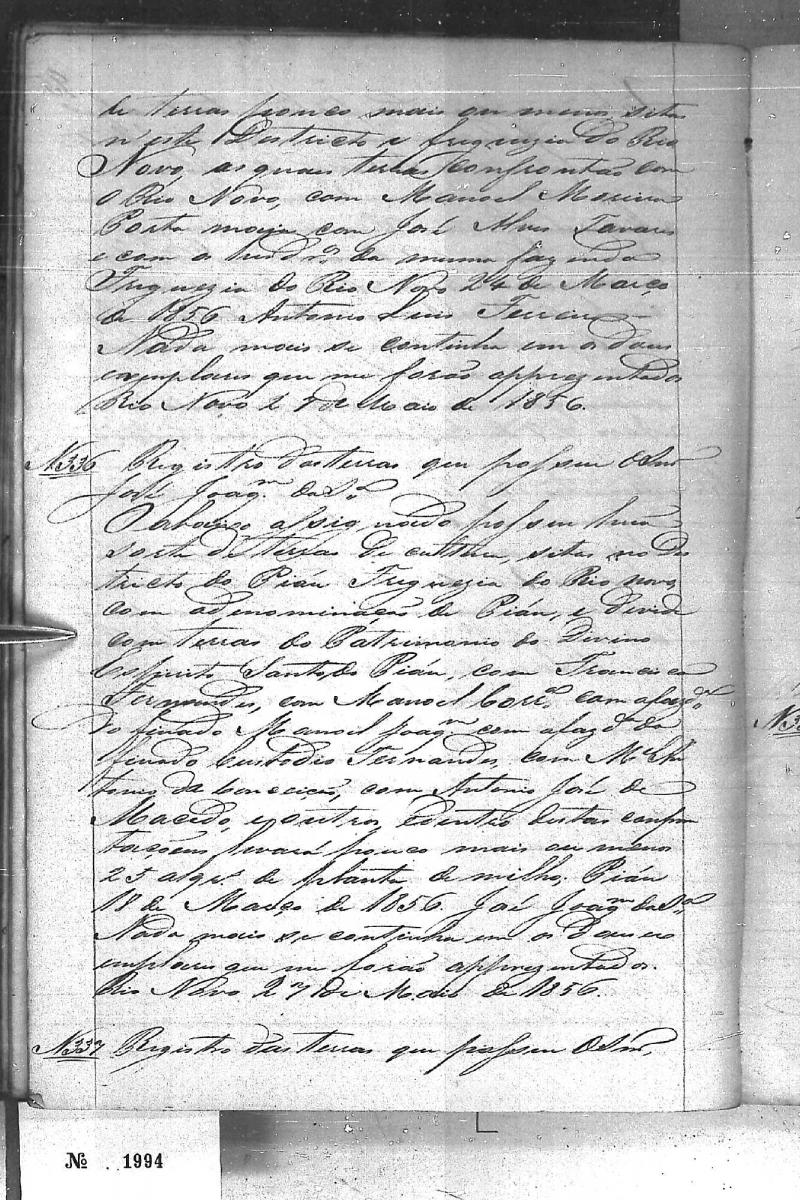 de terras pouco mais ou menos sitas
n'este Destricto e freguezia do Rio
Novo, as quais terras confrontão com
o Rio Novo, com Manoel Moreira
Porto mais com José Alves Tavares
e com os herdros da mesma fazenda
Freguezia do Rio Novo 24 de Março
de 1856 Antonio Luis Ferreira
Nada mais se continha em os dous
exemplares que me forão apprezentados
Rio Novo 27 de Maio de 1856.
N336 Registro das terras que possue O Snr
José Joaqm da Sa
O abaixo assignado possue huma
sorte de terras de cultura, sitas no Des
tricto do Piáu Freguezia do Rio novo,
com adenominação de Piáu, e devide
com terras do Patrimonio do Devino
Espirito Santo do Piáu, com Francisco
Fernandes, com Manoel Corra, com afazda
do finado Manoel Joaqm com afazda do
finado Custodio Fernandes, com Mel An
tonio da Conceição, com Antonio José de
Macedo, e outros, e dentro destas confron
tações levará pouco mais ou menos
25 alqrs de planta de milho, Piáu
18 de Março de 1856. José Joaqm da Sa
Nada mais se continha em os dous ex
emplares que me forão apprezentados.
Rio Novo 27 de Maio de 1856.
N337 Registro das terras que possue O Snr,
Nº 1994